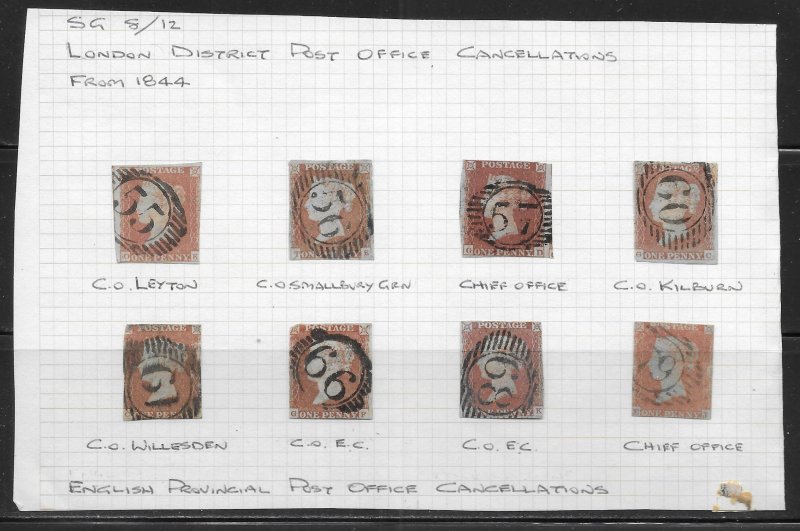 SG 8/12
LONDON DISTRICT POST OFFICE CANCELLATIONS
FROM 1844
POSTAGE POSTAGE POSTAGE
55 56 57 60
ONE PENNY ONE PENNY G ONE PENNY D ONE PENNY C
C.O. LEYTON C.O SMALLBURY GRN CHIEF OFFICE C.O. KILBURN
POSTAGE
66 68
ONE PENNY ONE PENNY K ONE PENNY
C.O. WILLESDEN C.O. E.C. C.O. E.C. CHIEF OFFICE
ENGLISH PROVINCIAL POST OFFICE CANCELLATIONS